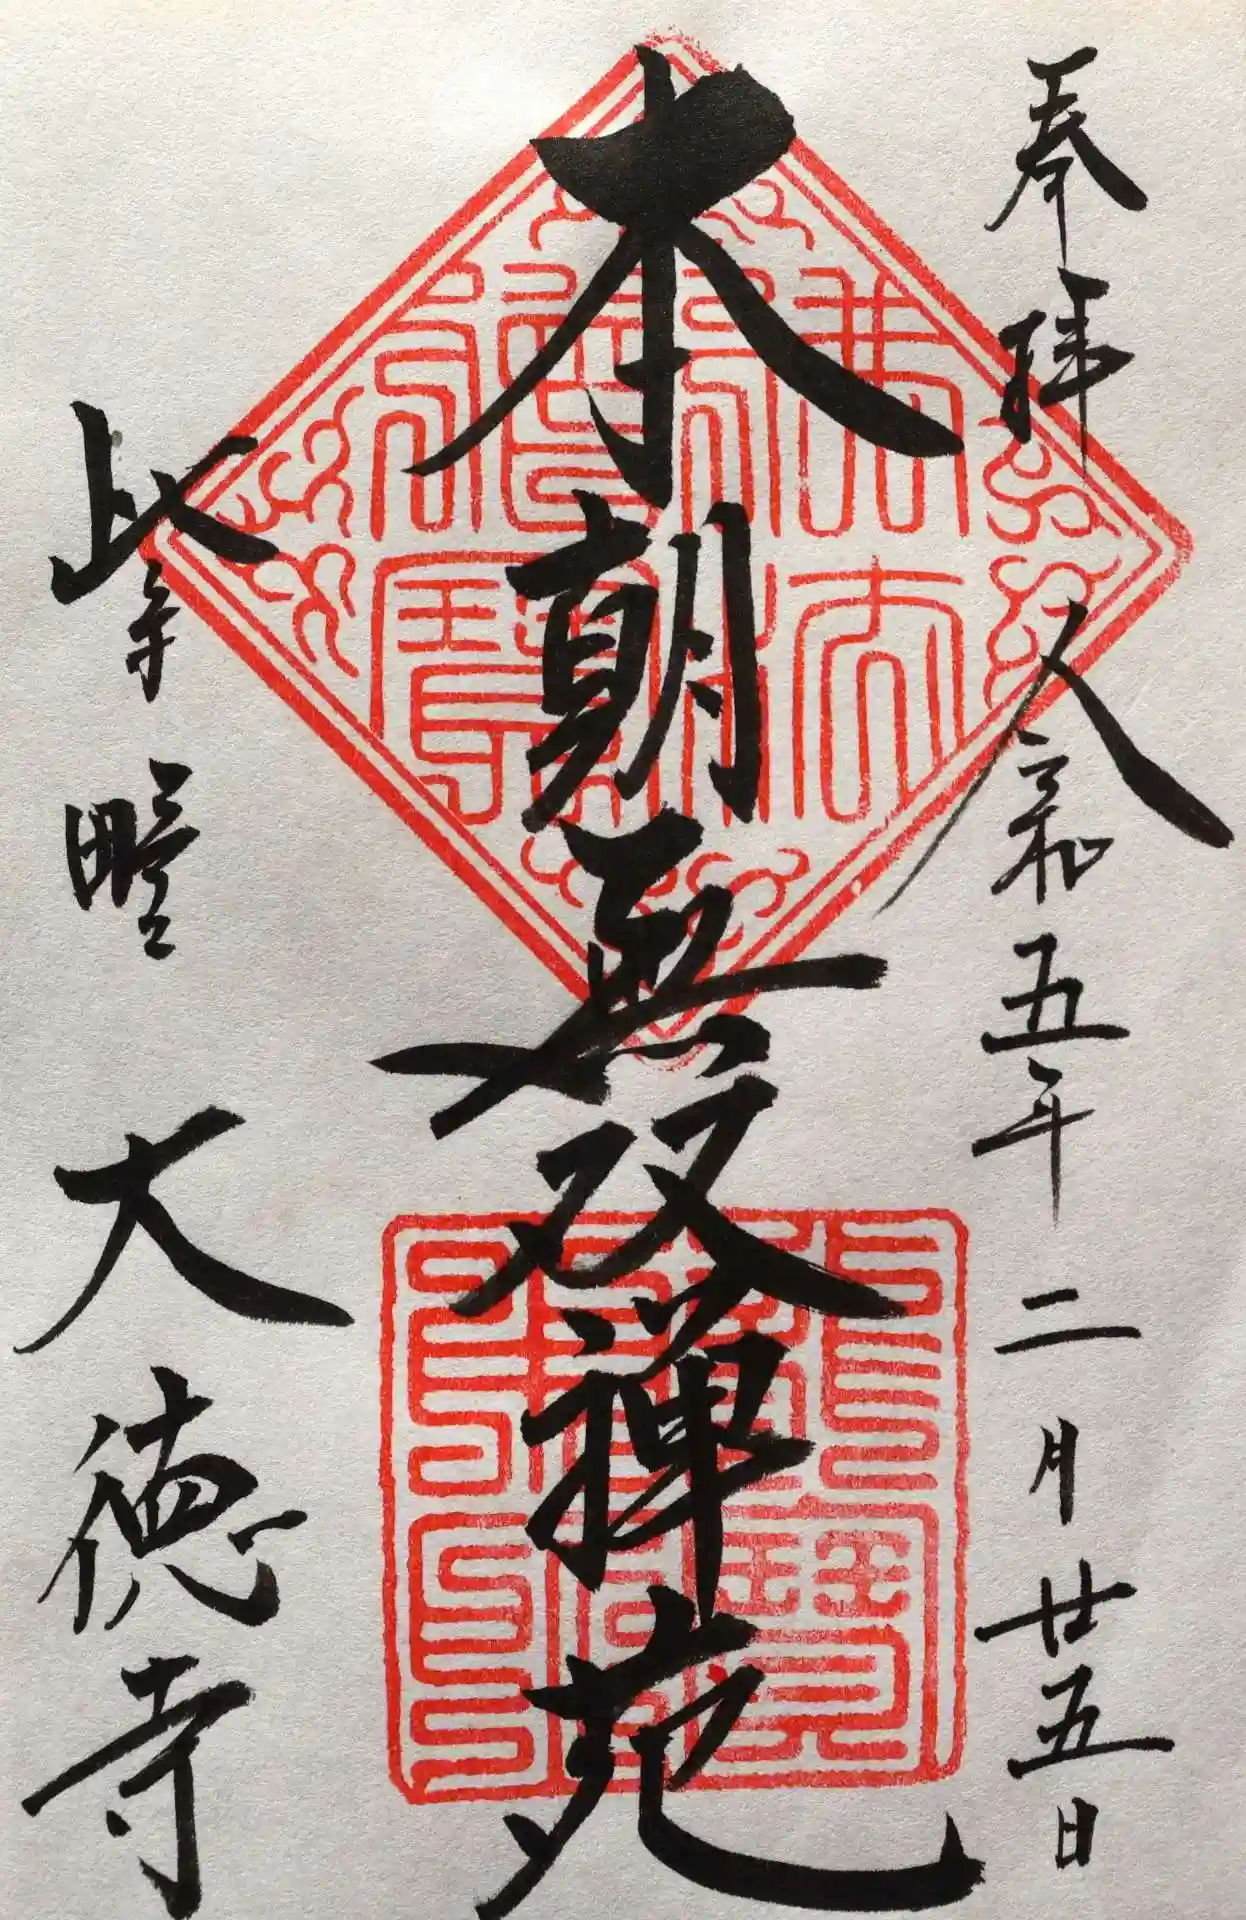 奉拝
令和五年二月廿五日
本朝無双禅苑
紫野 大徳寺